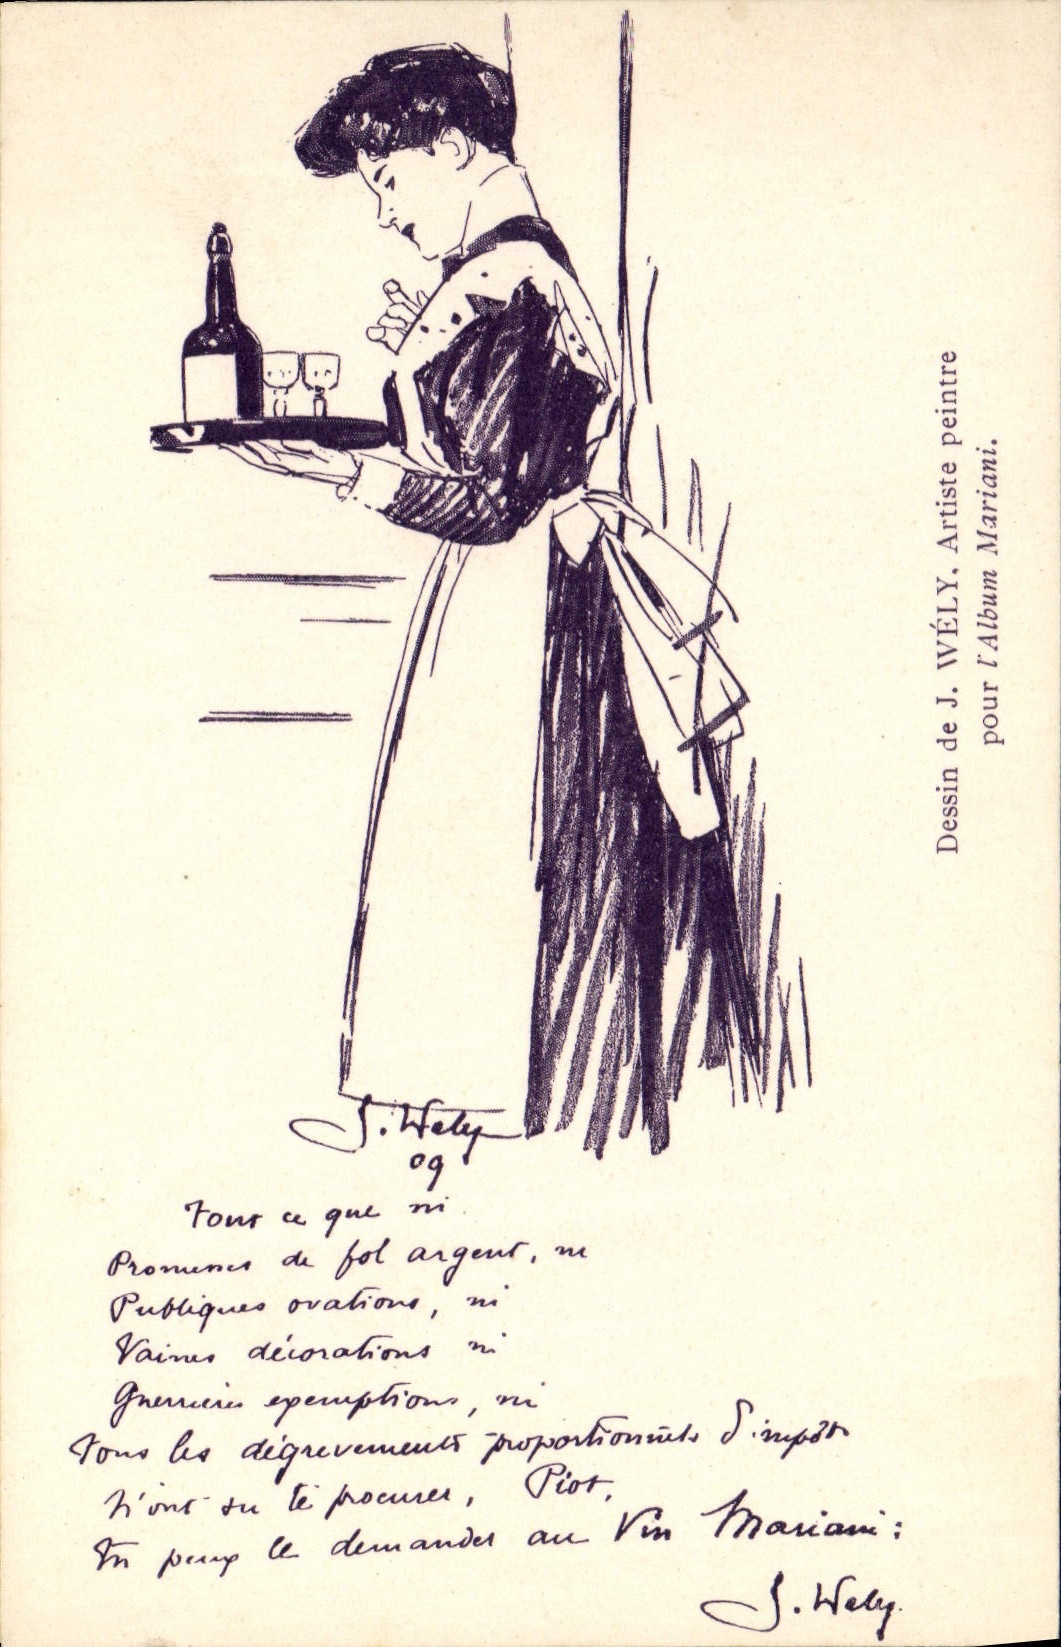 J. Wély
09
Tout ce que ni
Promesses de fol argent, ni
Publiques ovations, ni
Vaines décorations ni
Guerrières exemptions, ni
Tous les dégrevements proportionnels d'impôts
N'ont su te procurer, Piot,
Tu peux le demander au Vin Mariani :
J. Wély.
Dessin de J. WÉLY, Artiste peintre
pour l'Album Mariani.